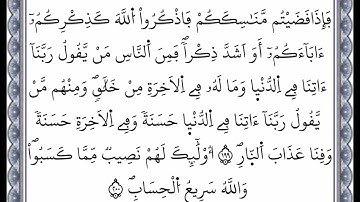 فَإِذَا قَضَيْتُم مَّنَٰسِكَكُمْ فَاذْكُرُواْ اللَّهَ كَذِكْرِكُمُۥٓ
ءَابَآءَكُمُۥٓ أَوَ اَشَدَّ ذِكْراٗۖ فَمِنَ اَ۬لنَّاسِ مَنْ يَّقُولُ رَبَّنَآ
ءَاتِنَا فِے اِ۬لدُّنْي۪ا وَمَا لَهُۥ فِے اِ۬لَاخِرَةِ مِنْ خَلَٰقٖۖ وَمِنْهُم مَّنْ
يَّقُولُ رَبَّنَآ ءَاتِنَا فِے اِ۬لدُّنْي۪ا حَسَنَةٗ وَفِے اِ۬لَاخِرَةِ حَسَنَةٗ
وَقِنَا عَذَابَ اَ۬لنّ۪ارِۖ ۝١٩٩ أُوْلَٰٓئِكَ لَهُمْ نَصِيبٞ مِّمَّا كَسَبُواْۖ
وَاللَّهُ سَرِيعُ اُ۬لْحِسَابِۖ ۝٢٠٠